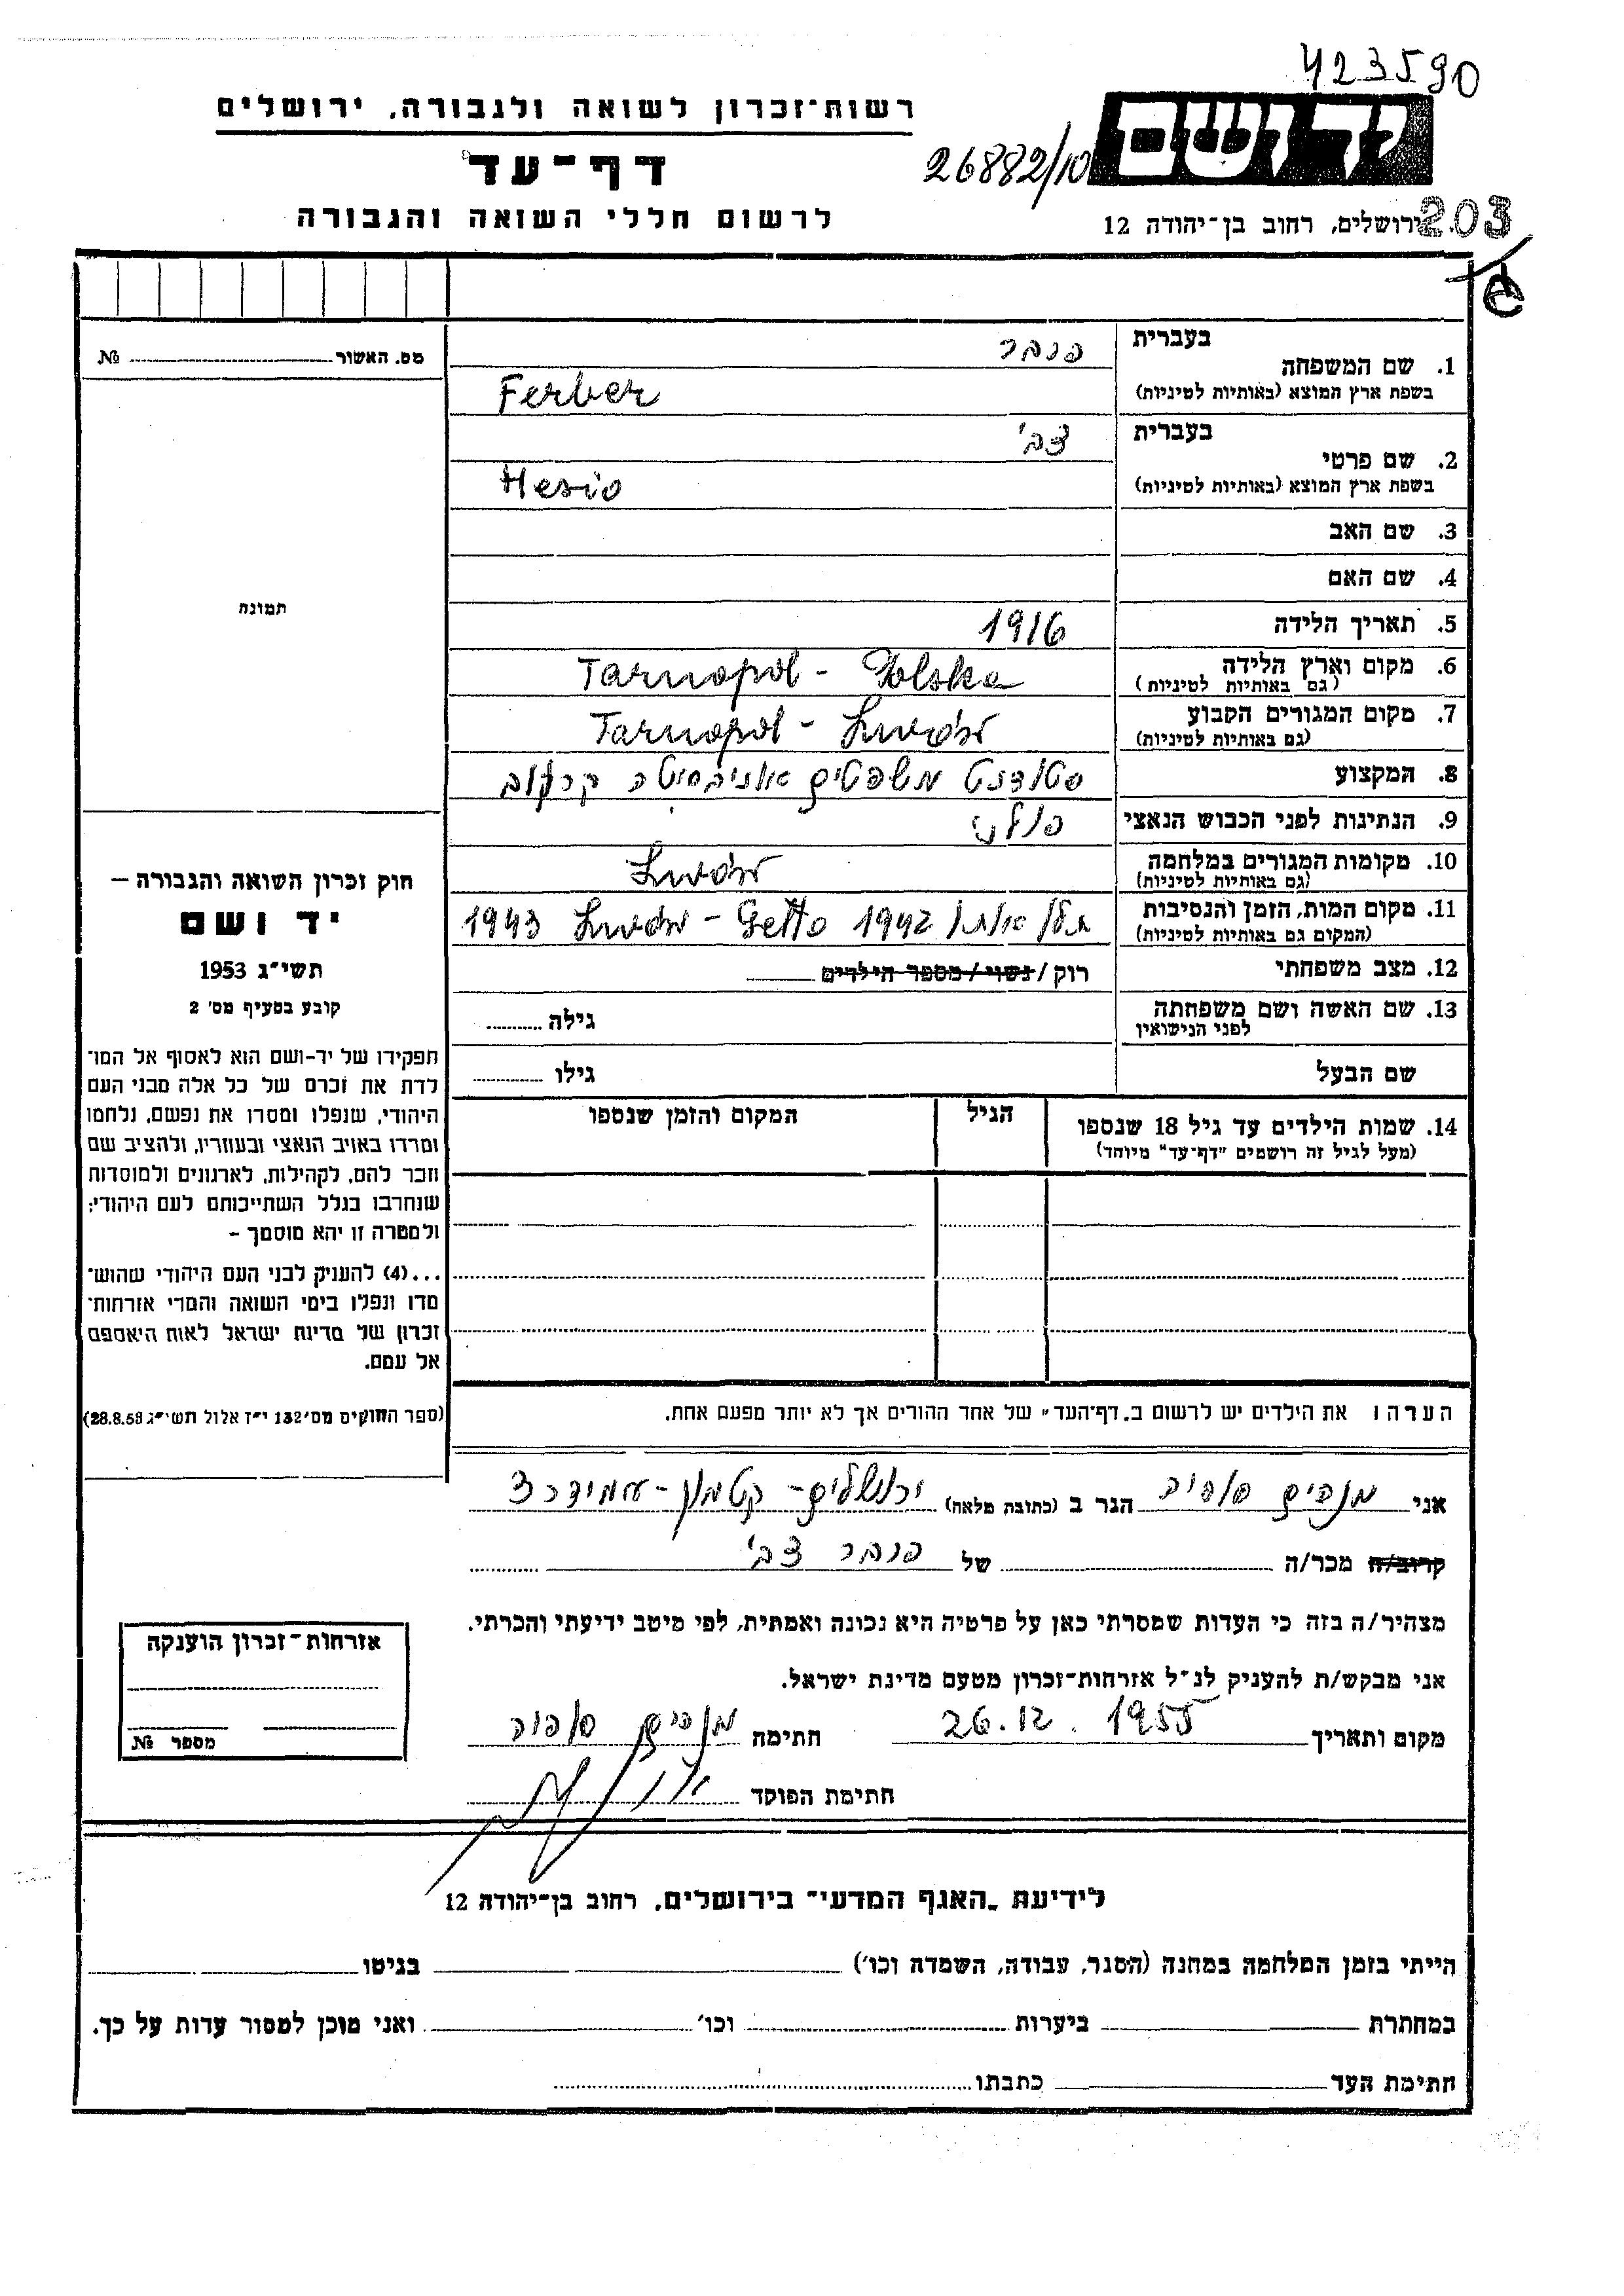 423590
רשות־זכרון לשואה ולגבורה, ירושלים
יד ושם
26882/10
דף־עד
לרשום חללי השואה והגבורה
ירושלים, רחוב בן־יהודה 12
203
מס. האשור № 
1. שם המשפחה
בעברית
פרבר
בשפת ארץ המוצא (באותיות לטיניות)
Ferber
2. שם פרטי
בעברית
צבי
בשפת ארץ המוצא (באותיות לטיניות)
Hesio
3. שם האב
4. שם האם
5. תאריך הלידה 1916
6. מקום וארץ הלידה
(גם באותיות לטיניות)
Tarnopol - Polska
7. מקום המגורים הקבוע
(גם באותיות לטיניות)
Tarnopol - Lwów
8. המקצוע סטודנט משפטים
9. הנתינות לפני הכבוש הנאצי פולני
10. מקומות המגורים במלחמה
(גם באותיות לטיניות)
Lwów
11. מקום המות, הזמן והנסיבות
(המקום גם באותיות לטיניות)
1942 Lwów - Getto 1943
12. מצב משפחתי רוק / נשוי / מספר הילדים
13. שם האשה ושם משפחתה
לפני הנישואין
גילה
שם הבעל גילו
14. שמות הילדים עד גיל 18 שנספו
(מעל לגיל זה רושמים "דף־עד" מיוחד)
הגיל
המקום והזמן שנספו
תמונה
חוק זכרון השואה והגבורה —
יד ושם
תשי״ג 1953
קובע בסעיף מס׳ 2
תפקידו של יד־ושם הוא לאסוף אל המו־
לדת את זכרם של כל אלה מבני העם
היהודי, שנפלו ומסרו את נפשם, נלחמו
ומרדו באויב הנאצי ובעוזריו, ולהציב שם
וזכר להם, לקהילות, לארגונים ולמוסדות
שנחרבו בגלל השתייכותם לעם היהודי;
ולמטרה זו יהא מוסמך –
...(4) להעניק לבני העם היהודי שהוש־
מדו ונפלו בימי השואה והמרי אזרחות־
זכרון של מדינת ישראל לאות היאספם
אל עמם.
(ספר החוקים מס׳ 132 י״ז אלול תשי״ג 28.8.53)
הערה: את הילדים יש לרשום ב„דף־העד״ של אחד ההורים אך לא יותר מפעם אחת.
אני מנהים הגר ב (כתובת מלאה) ירושלים - קטמון - עמידר 3
קרוב/ה מכר/ה של פרבר צבי
מצהיר/ה בזה כי העדות שמסרתי כאן על פרטיה היא נכונה ואמתית, לפי מיטב ידיעתי והכרתי.
אני מבקש/ת להעניק לנ״ל אזרחות־זכרון מטעם מדינת ישראל.
מקום ותאריך 26.12.1955 חתימה
חתימת הפוקד
אזרחות־זכרון הוענקה
מספר №
לידיעת „האגף המדעי״ בירושלים, רחוב בן־יהודה 12
הייתי בזמן המלחמה במחנה (הסגר, עבודה, השמדה וכו׳) בגיטו
במחתרת ביערות וכו׳ ואני מוכן למסור עדות על כך.
חתימת העד כתבתו